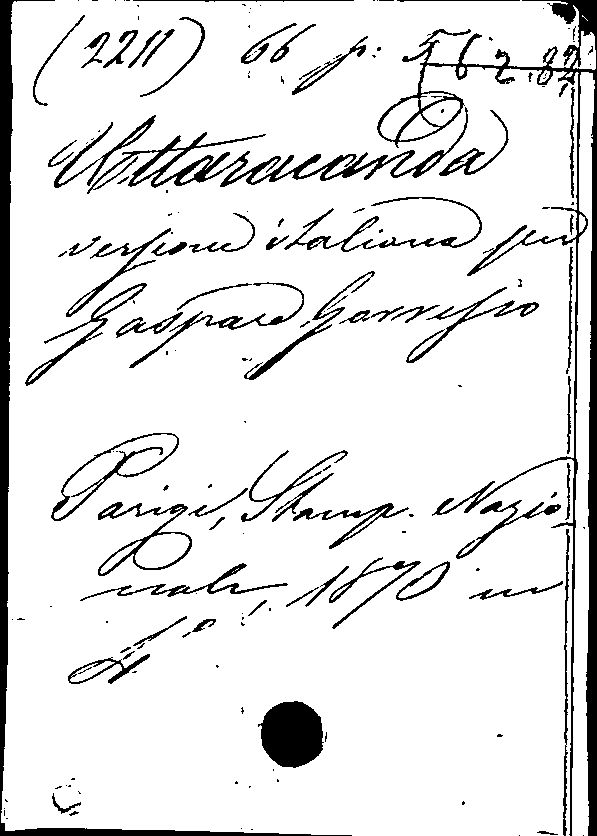 (2211) 66 p: 5 6 2.82
Uttaracanda
versione italiana per
Gaspare Gorresio
Parigi, Stamp. Nazio
nale, 1870 in
4°